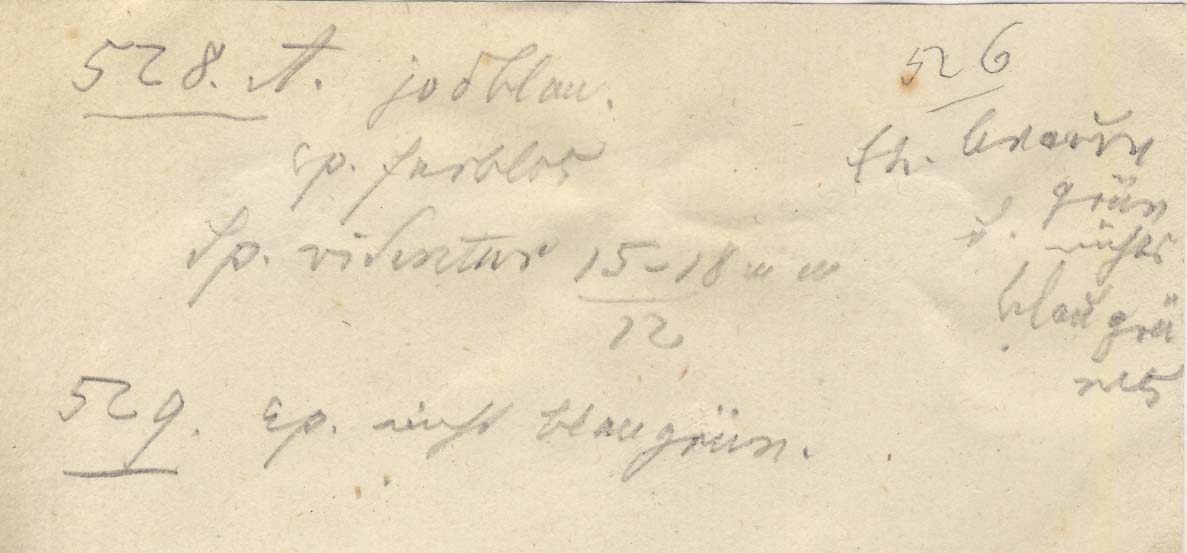 528. A. jodblau.
ep. farblos
Sp. videntur 15-18 m m
12
529. ep. nicht blaugrün.
526
th. braun
grün
nichts
blaugrü
nes